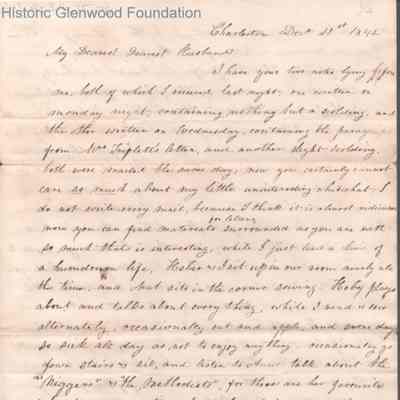 Historic Glenwood Foundation
Charleston Dec 21st 1845
My Dearest Dearest Husband
I have your two notes lying before
me, both of which I received last night, one written on
monday night, containing nothing but a scolding, and
the other written on Wednesday, containing the paragraph
from Mrs Triplett's letter, and another slight scolding
both were mailed the same day, now you certainly cannot
care so much about my little uninteresting chitchat. I
do not write every mail, because I think it is almost ridiculous
for
now you can find materials surrounded as you are with
so much that is interesting, while I just lead a
life, & I sit up in our room nearly all
the time, and but sits in the corner sewing. Hoby plays
about and talks about every thing, while I read & sew
alternately, occasionally eat and apple, and some days
so sick all day as not to enjoy anything. occasionally go
down stairs & sit, and listen to Aunt talk about the
"Niggers" & "the Methodists", for those are her favourite